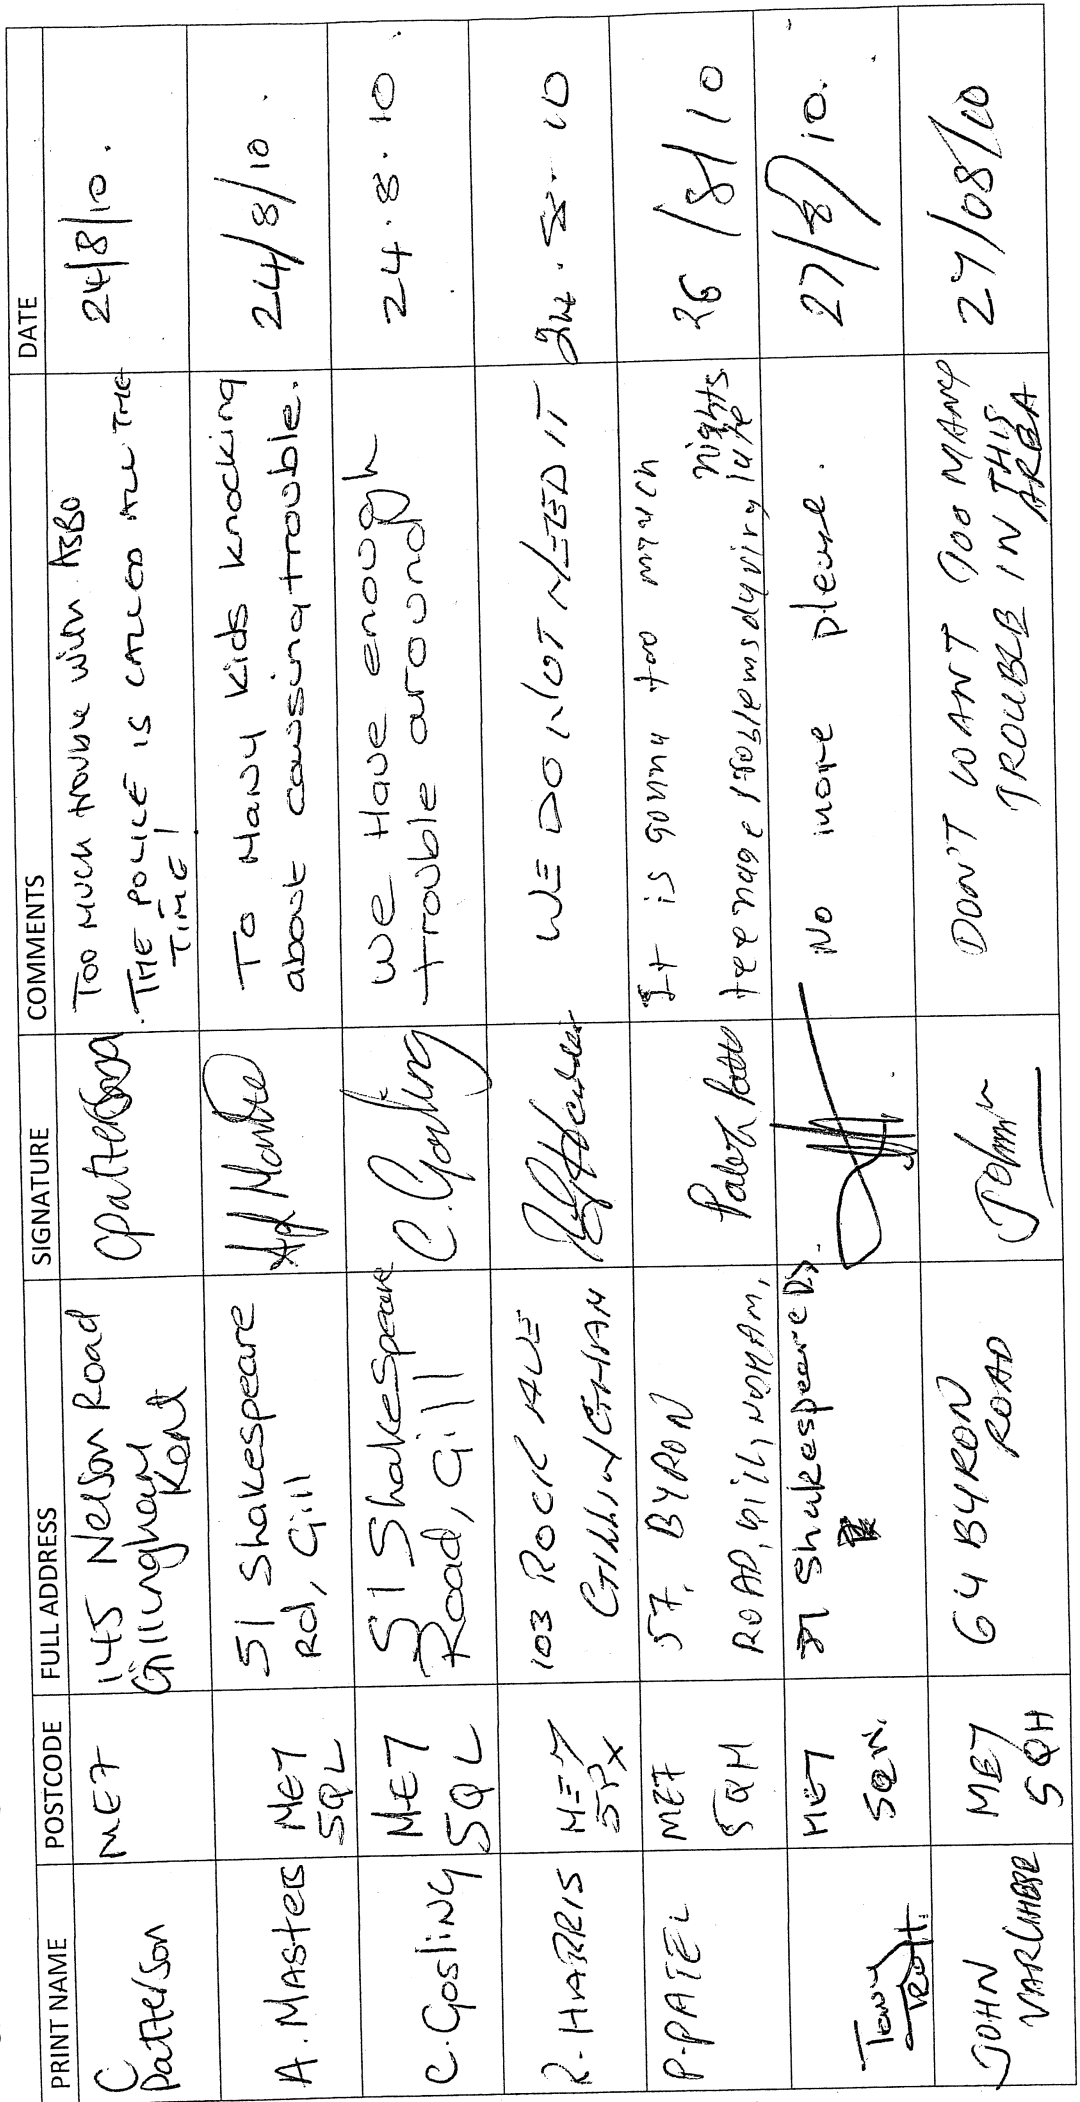 PRINT NAME POSTCODE FULL ADDRESS SIGNATURE COMMENTS DATE
C Patterson
ME7
145 Nelson Road
Gillingham
Kent
CPatterson
Too much trouble with ASBO
THE POLICE IS CALLED ALL THE
TIME!
24/8/10.
A. Masters
ME7
5QL
51 Shakespeare
Rd, Gill
To Many kids knocking
about causing trouble.
24/8/10.
C. Gosling
ME7
5QL
51 Shakespeare
Road, Gill
C. Gosling
We Have enough
trouble around
24.8.10.
R. HARRIS
ME7
5PX
103 ROCK AVE
GILLINGHAM
WE DO NOT NEED IT
24.8.10
P. PATEL
ME7
5QH
57, BYRON
ROAD, GILLINGHAM,
It is gonna too much
teenage problems during late nights
26/8/10
Tony
ME7
Shakespeare Rd.
No more please.
27/8/10.
JOHN
VARGHESE
ME7
5QH
64 BYRON
ROAD
John
DON'T WANT TOO MANY
TROUBLE IN THIS
AREA
27/08/10